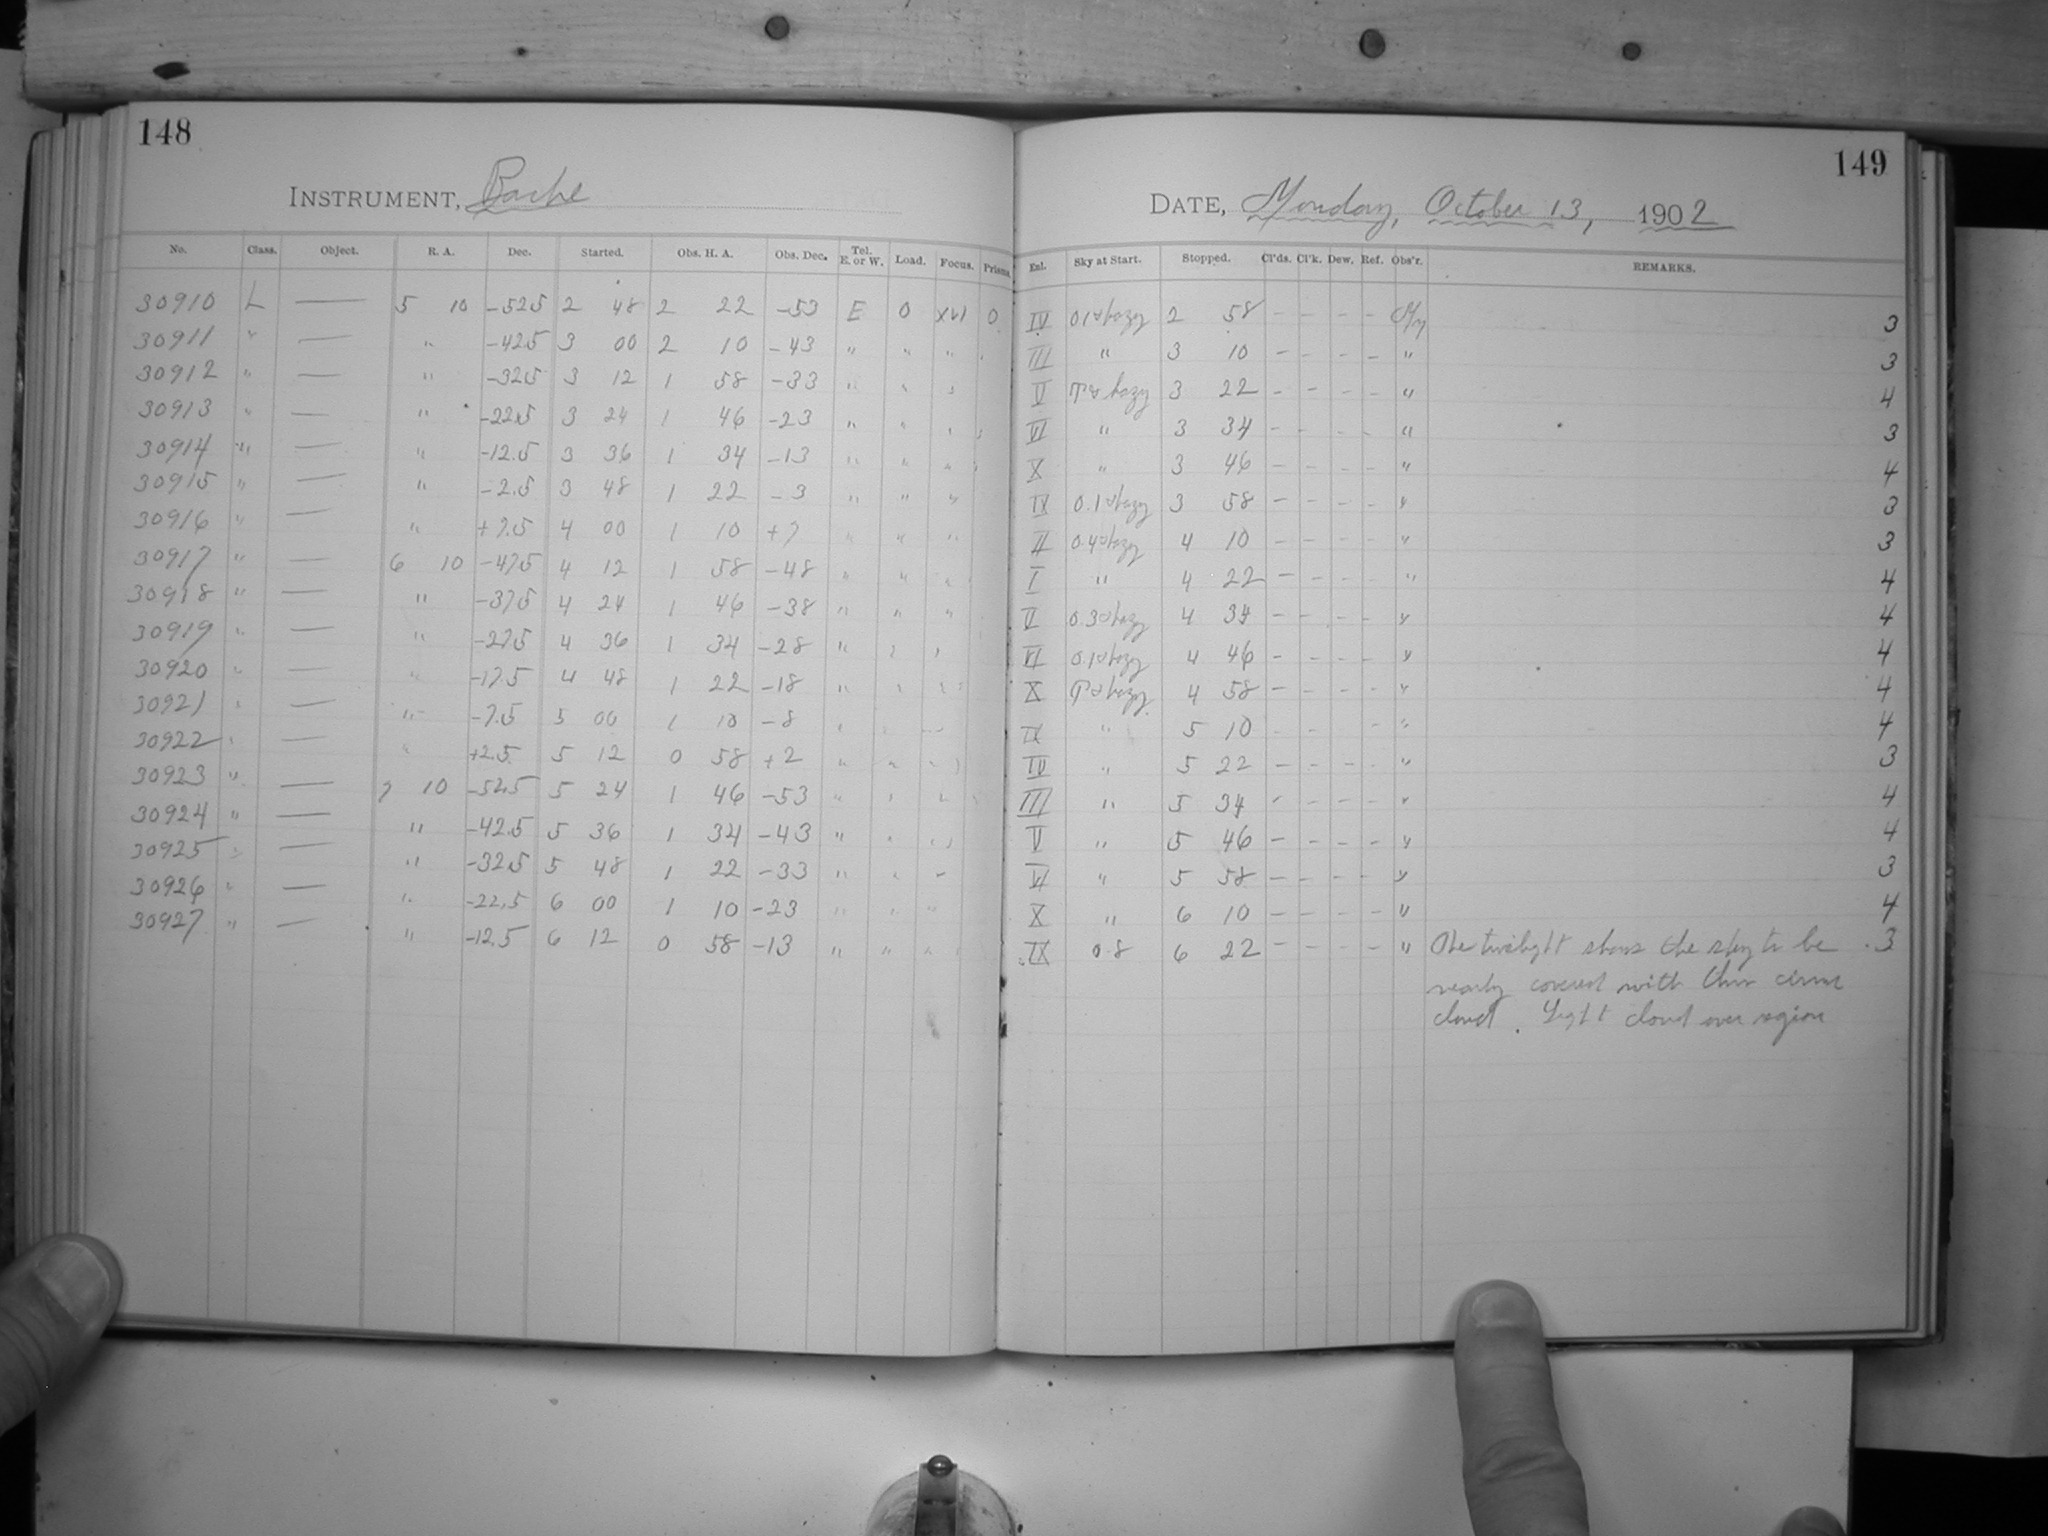 148
INSTRUMENT, Bache
No. Class. Object. R. A. Dec. Started. Obs. H. A. Obs. Dec. Tel. E. or W. Load. Focus. Prisms.
30910 L — 5 10 -52.5 2 48 2 22 -53 E 0 XVI 0
30911 " — " -42.5 3 00 2 10 -43 " " "
30912 " — " -32.5 3 12 1 58 -33 " " "
30913 " — " -22.5 3 24 1 46 -23 " " "
30914 " — " -12.5 3 36 1 34 -13 " " "
30915 " — " -2.5 3 48 1 22 -3 " " "
30916 " — " +7.5 4 00 1 10 +7 " " "
30917 " — 6 10 -47.5 4 12 1 58 -48 " " "
30918 " — " -37.5 4 24 1 46 -38 " " "
30919 " — " -27.5 4 36 1 34 -28 " " "
30920 " — " -17.5 4 48 1 22 -18 " " "
30921 " — " -7.5 5 00 1 10 -8 " " "
30922 " — " +2.5 5 12 0 58 +2 " " "
30923 " — 7 10 -52.5 5 24 1 46 -53 " " "
30924 " — " -42.5 5 36 1 34 -43 " " "
30925 " — " -32.5 5 48 1 22 -33 " " "
30926 " — " -22.5 6 00 1 10 -23 " " "
30927 " — " -12.5 6 12 0 58 -13 " " "
149
DATE, Monday, October 13, 1902
Enl. Sky at Start. Stopped. Cl'ds. Cl'k. Dew. Ref. Obs'r. REMARKS.
IV hazy 2 58 - - - - 3
III " 3 10 - - - - " 3
V hazy 3 22 - - - - " 4
VI " 3 34 - - - - " 3
X " 3 46 - - - - " 4
IX 0.1 hazy 3 58 - - - - " 3
II 0.4 hazy 4 10 - - - - " 3
I " 4 22 - - - - " 4
V 0.3 hazy 4 34 - - - - " 4
VI 0.1 hazy 4 46 - - - - " 4
X hazy 4 58 - - - - " 4
IX " 5 10 - - - " 4
IV " 5 22 - - - - " 3
III " 5 34 - - - - " 4
V " 5 46 - - - - " 4
VI " 5 58 - - - - " 3
X " 6 10 - - - - " 4
IX 0.8 6 22 - - - - " The twilight shows the sky to be 3
nearly covered with thin cirrus
cloud. Light cloud over region